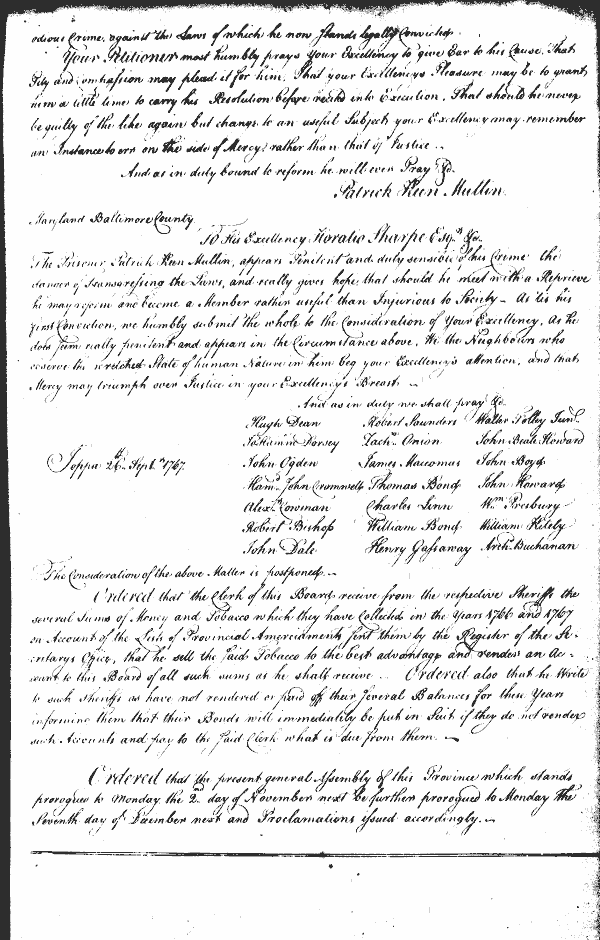 odious Crime, against the Laws of which he now stands legally Convicted.
Your Petitioner most humbly prays your Excellency to give Ear to his Cause. That
Pity and Compassion may plead it for him. That your Excellencys Pleasure may be to grant
him a little time to carry his Resolution before recited into Execution. That should he never
be guilty of the like again but change to an useful Subject your Excellency may remember
an Instance to err on the side of Mercy rather than that of Justice..
And as in duty bound to reform he will ever Pray &c.
Patrick Keen Mullin.
Maryland Baltimore County
To His Excellency Horatio Sharpe Esqr. &c.
The Prisoner Patrick Keen Mullin, appears Penitent and duly sensible of his Crime the
danger of transgressing the Laws, and really gives hope that should he meet with a Reprieve
he may reform and become a Member rather useful than Injurious to Society - As tis his
first Conviction, we humbly submit the whole to the Consideration of Your Excellency. As he
does seem really penitent and appears in the Circumstance above. We the Neighbours who
observe the wretched State of human Nature in him beg your Excellency's attention, and that
Mercy may triumph over Justice in your Excellency's Breast —
And as in duty we shall pray &c.
Hugh Dean Robert Saunders Walter Tolley Junr.
Dorsey Zachs. Onion John Beale Howard
Joppa 26th Septr. 1767. John Ogden James Maccomas John Boyd
John Cromwell Thomas Bond John Howard
Alexr. Cowman Charles Linn Wm. Presbury
Robert Bishop William Bond William
John Dale Henry Gassaway Archd. Buchanan
The Consideration of the above Matter is postponed. —
Ordered that the Clerk of this Board receive from the respective Sheriffs the
several Sums of Money and Tobacco which they have Collected in the Years 1766 and 1767
on Account of the Lists of Provincial Amerciaments sent them by the Register of the Se-
cretarys Office, that he sell the said Tobacco to the best advantage and render an Ac-
count to this Board of all such sums as he shall receive .. Ordered also that he Write
to such Sheriffs as have not rendered or paid off their several Balances for these Years
informing them that their Bonds will immediately be put in Suit if they do not render
such Accounts and pay to the said Clerk what is due from them. —
Ordered that the present general Assembly of this Province which stands
prorogued to Monday the 2nd day of November next be further prorogued to Monday the
Seventh day of December next and Proclamations issued accordingly. —